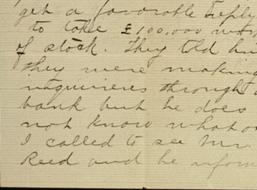 get a favorable reply
to take £100,000 wor
of stock. They told hi
they were making
inquireies throught a
bank but he does
not know what o
I called to see Mr
Reed and he inform